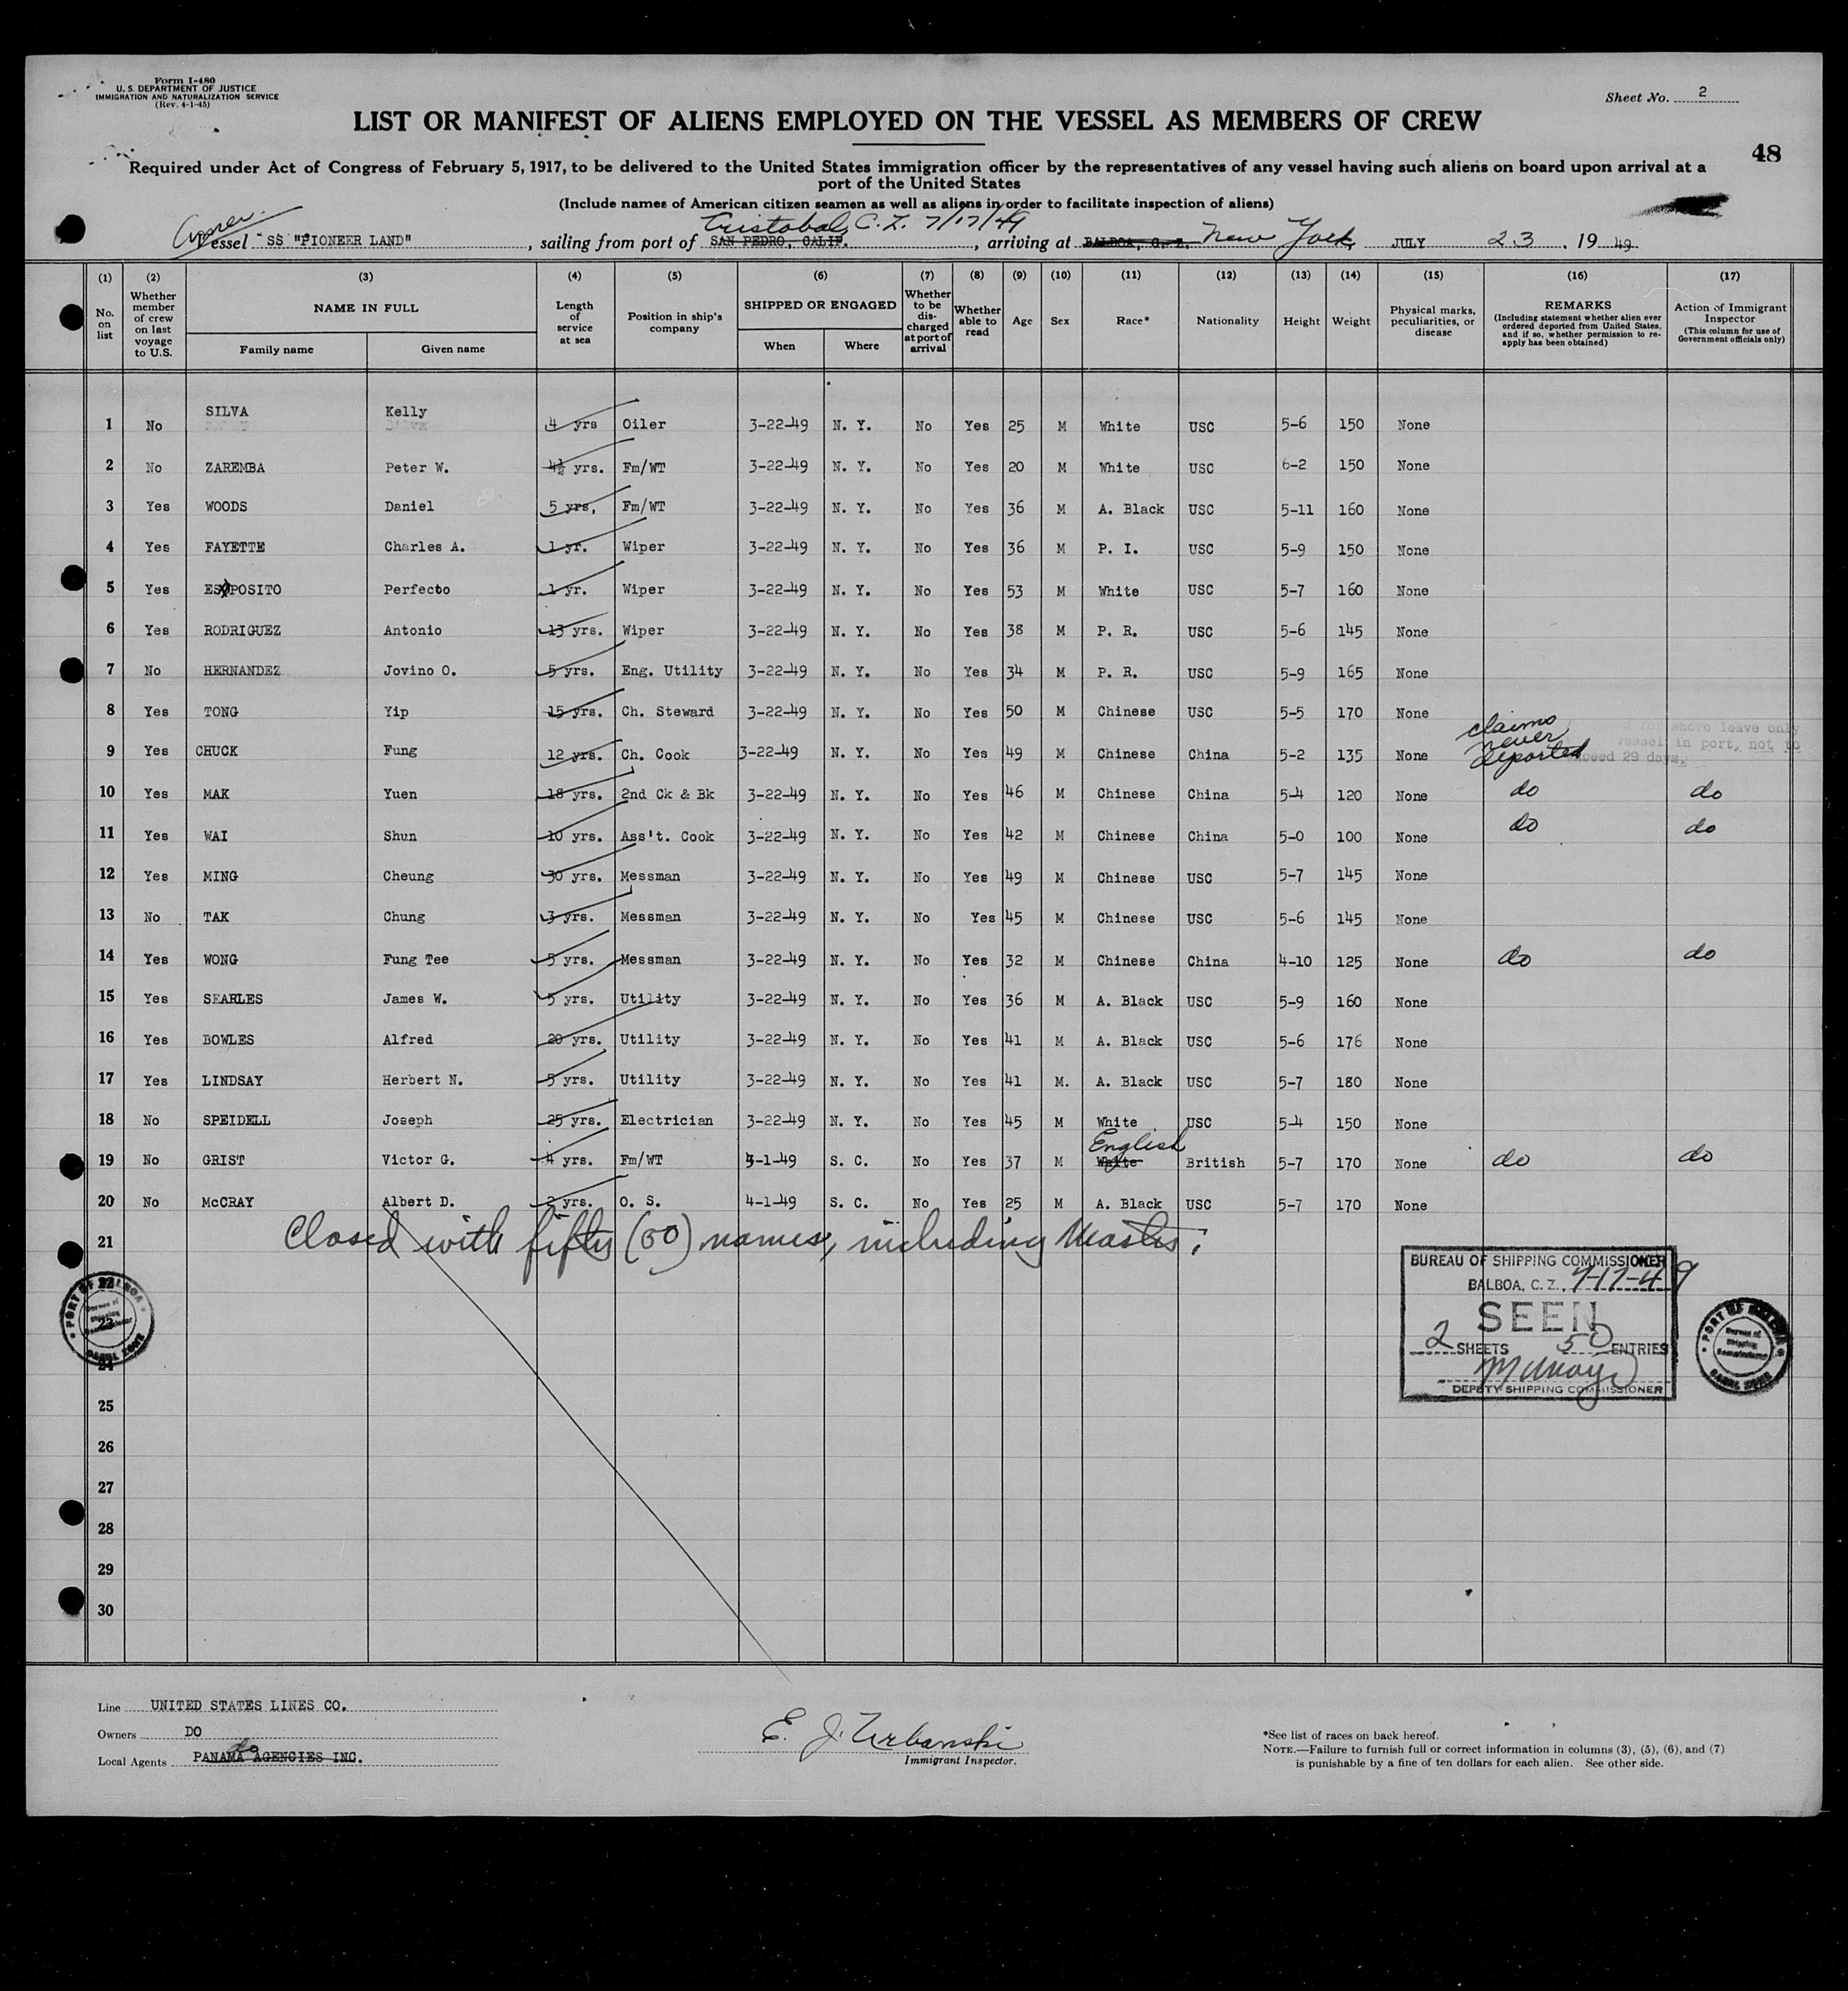 Form I-480
U. S. DEPARTMENT OF JUSTICE
IMMIGRATION AND NATURALIZATION SERVICE
(Rev. 4-1-45)
Sheet No. 2
LIST OR MANIFEST OF ALIENS EMPLOYED ON THE VESSEL AS MEMBERS OF CREW
48
Required under Act of Congress of February 5, 1917, to be delivered to the United States immigration officer by the representatives of any vessel having such aliens on board upon arrival at a
port of the United States
(Include names of American citizen seamen as well as aliens in order to facilitate inspection of aliens)
Cristobal, C.Z. 7/17/49
Vessel SS "PIONEER LAND", sailing from port of SAN PEDRO, CALIF., arriving at BALBOA, C. Z. New York, JULY 23, 19 49
(1) (2) (3) (4) (5) (6) (7) (8) (9) (10) (11) (12) (13) (14) (15) (16) (17)
No. on list
Whether member of crew on last voyage to U.S.
NAME IN FULL
Family name Given name
Length of service at sea
Position in ship's company
SHIPPED OR ENGAGED
When Where
Whether to be discharged at port of arrival
Whether able to read
Age
Sex
Race*
Nationality
Height
Weight
Physical marks, peculiarities, or disease
REMARKS
(Including statement whether alien ever ordered deported from United States, and if so, whether permission to reapply has been obtained)
Action of Immigrant Inspector
(This column for use of Government officials only)
1 No SILVA Kelly 4 yrs Oiler 3-22-49 N. Y. No Yes 25 M White USC 5-6 150 None
2 No ZAREMBA Peter W. 4½ yrs. Fm/WT 3-22-49 N. Y. No Yes 20 M White USC 6-2 150 None
3 Yes WOODS Daniel 5 yrs. Fm/WT 3-22-49 N. Y. No Yes 36 M A. Black USC 5-11 160 None
4 Yes FAYETTE Charles A. 1 yr. Wiper 3-22-49 N. Y. No Yes 36 M P. I. USC 5-9 150 None
5 Yes ESPOSITO Perfecto 1 yr. Wiper 3-22-49 N. Y. No Yes 53 M White USC 5-7 160 None
6 Yes RODRIGUEZ Antonio 13 yrs. Wiper 3-22-49 N. Y. No Yes 38 M P. R. USC 5-6 145 None
7 No HERNANDEZ Jovino O. 5 yrs. Eng. Utility 3-22-49 N. Y. No Yes 34 M P. R. USC 5-9 165 None
8 Yes TONG Yip 15 yrs. Ch. Steward 3-22-49 N. Y. No Yes 50 M Chinese USC 5-5 170 None
9 Yes CHUCK Fung 12 yrs. Ch. Cook 3-22-49 N. Y. No Yes 49 M Chinese China 5-2 135 None claims never deported for shore leave only vessel in port, not to exceed 29 days.
10 Yes MAK Yuen 18 yrs. 2nd Ck & Bk 3-22-49 N. Y. No Yes 46 M Chinese China 5-4 120 None do do
11 Yes WAI Shun 10 yrs. Ass't. Cook 3-22-49 N. Y. No Yes 42 M Chinese China 5-0 100 None do do
12 Yes MING Cheung 30 yrs. Messman 3-22-49 N. Y. No Yes 49 M Chinese USC 5-7 145 None
13 No TAK Chung 3 yrs. Messman 3-22-49 N. Y. No Yes 45 M Chinese USC 5-6 145 None
14 Yes WONG Fung Tee 5 yrs. Messman 3-22-49 N. Y. No Yes 32 M Chinese China 4-10 125 None do do
15 Yes SEARLES James W. 5 yrs. Utility 3-22-49 N. Y. No Yes 36 M A. Black USC 5-9 160 None
16 Yes BOWLES Alfred 20 yrs. Utility 3-22-49 N. Y. No Yes 41 M A. Black USC 5-6 176 None
17 Yes LINDSAY Herbert N. 5 yrs. Utility 3-22-49 N. Y. No Yes 41 M. A. Black USC 5-7 180 None
18 No SPEIDELL Joseph 25 yrs. Electrician 3-22-49 N. Y. No Yes 45 M White USC 5-4 150 None
19 No GRIST Victor G. 4 yrs. Fm/WT 5-1-49 S. C. No Yes 37 M White English British 5-7 170 None do do
20 No McCRAY Albert D. 2 yrs. O. S. 4-1-49 S. C. No Yes 25 M A. Black USC 5-7 170 None
21 Closed with fifty (50) names, including Master;
22
23
24
25
26
27
28
29
30
PORT OF BALBOA
Bureau of Shipping Commissioner
CANAL ZONE
BUREAU OF SHIPPING COMMISSIONER
BALBOA, C. Z., 7-17-49
SEEN
2 SHEETS 50 ENTRIES
DEPUTY SHIPPING COMMISSIONER
PORT OF BALBOA
Bureau of Shipping Commissioner
CANAL ZONE
Line UNITED STATES LINES CO.
Owners DO
Local Agents PANAMA AGENCIES INC. do
E. J. Urbanski
Immigrant Inspector.
*See list of races on back hereof.
NOTE.—Failure to furnish full or correct information in columns (3), (5), (6), and (7)
is punishable by a fine of ten dollars for each alien. See other side.